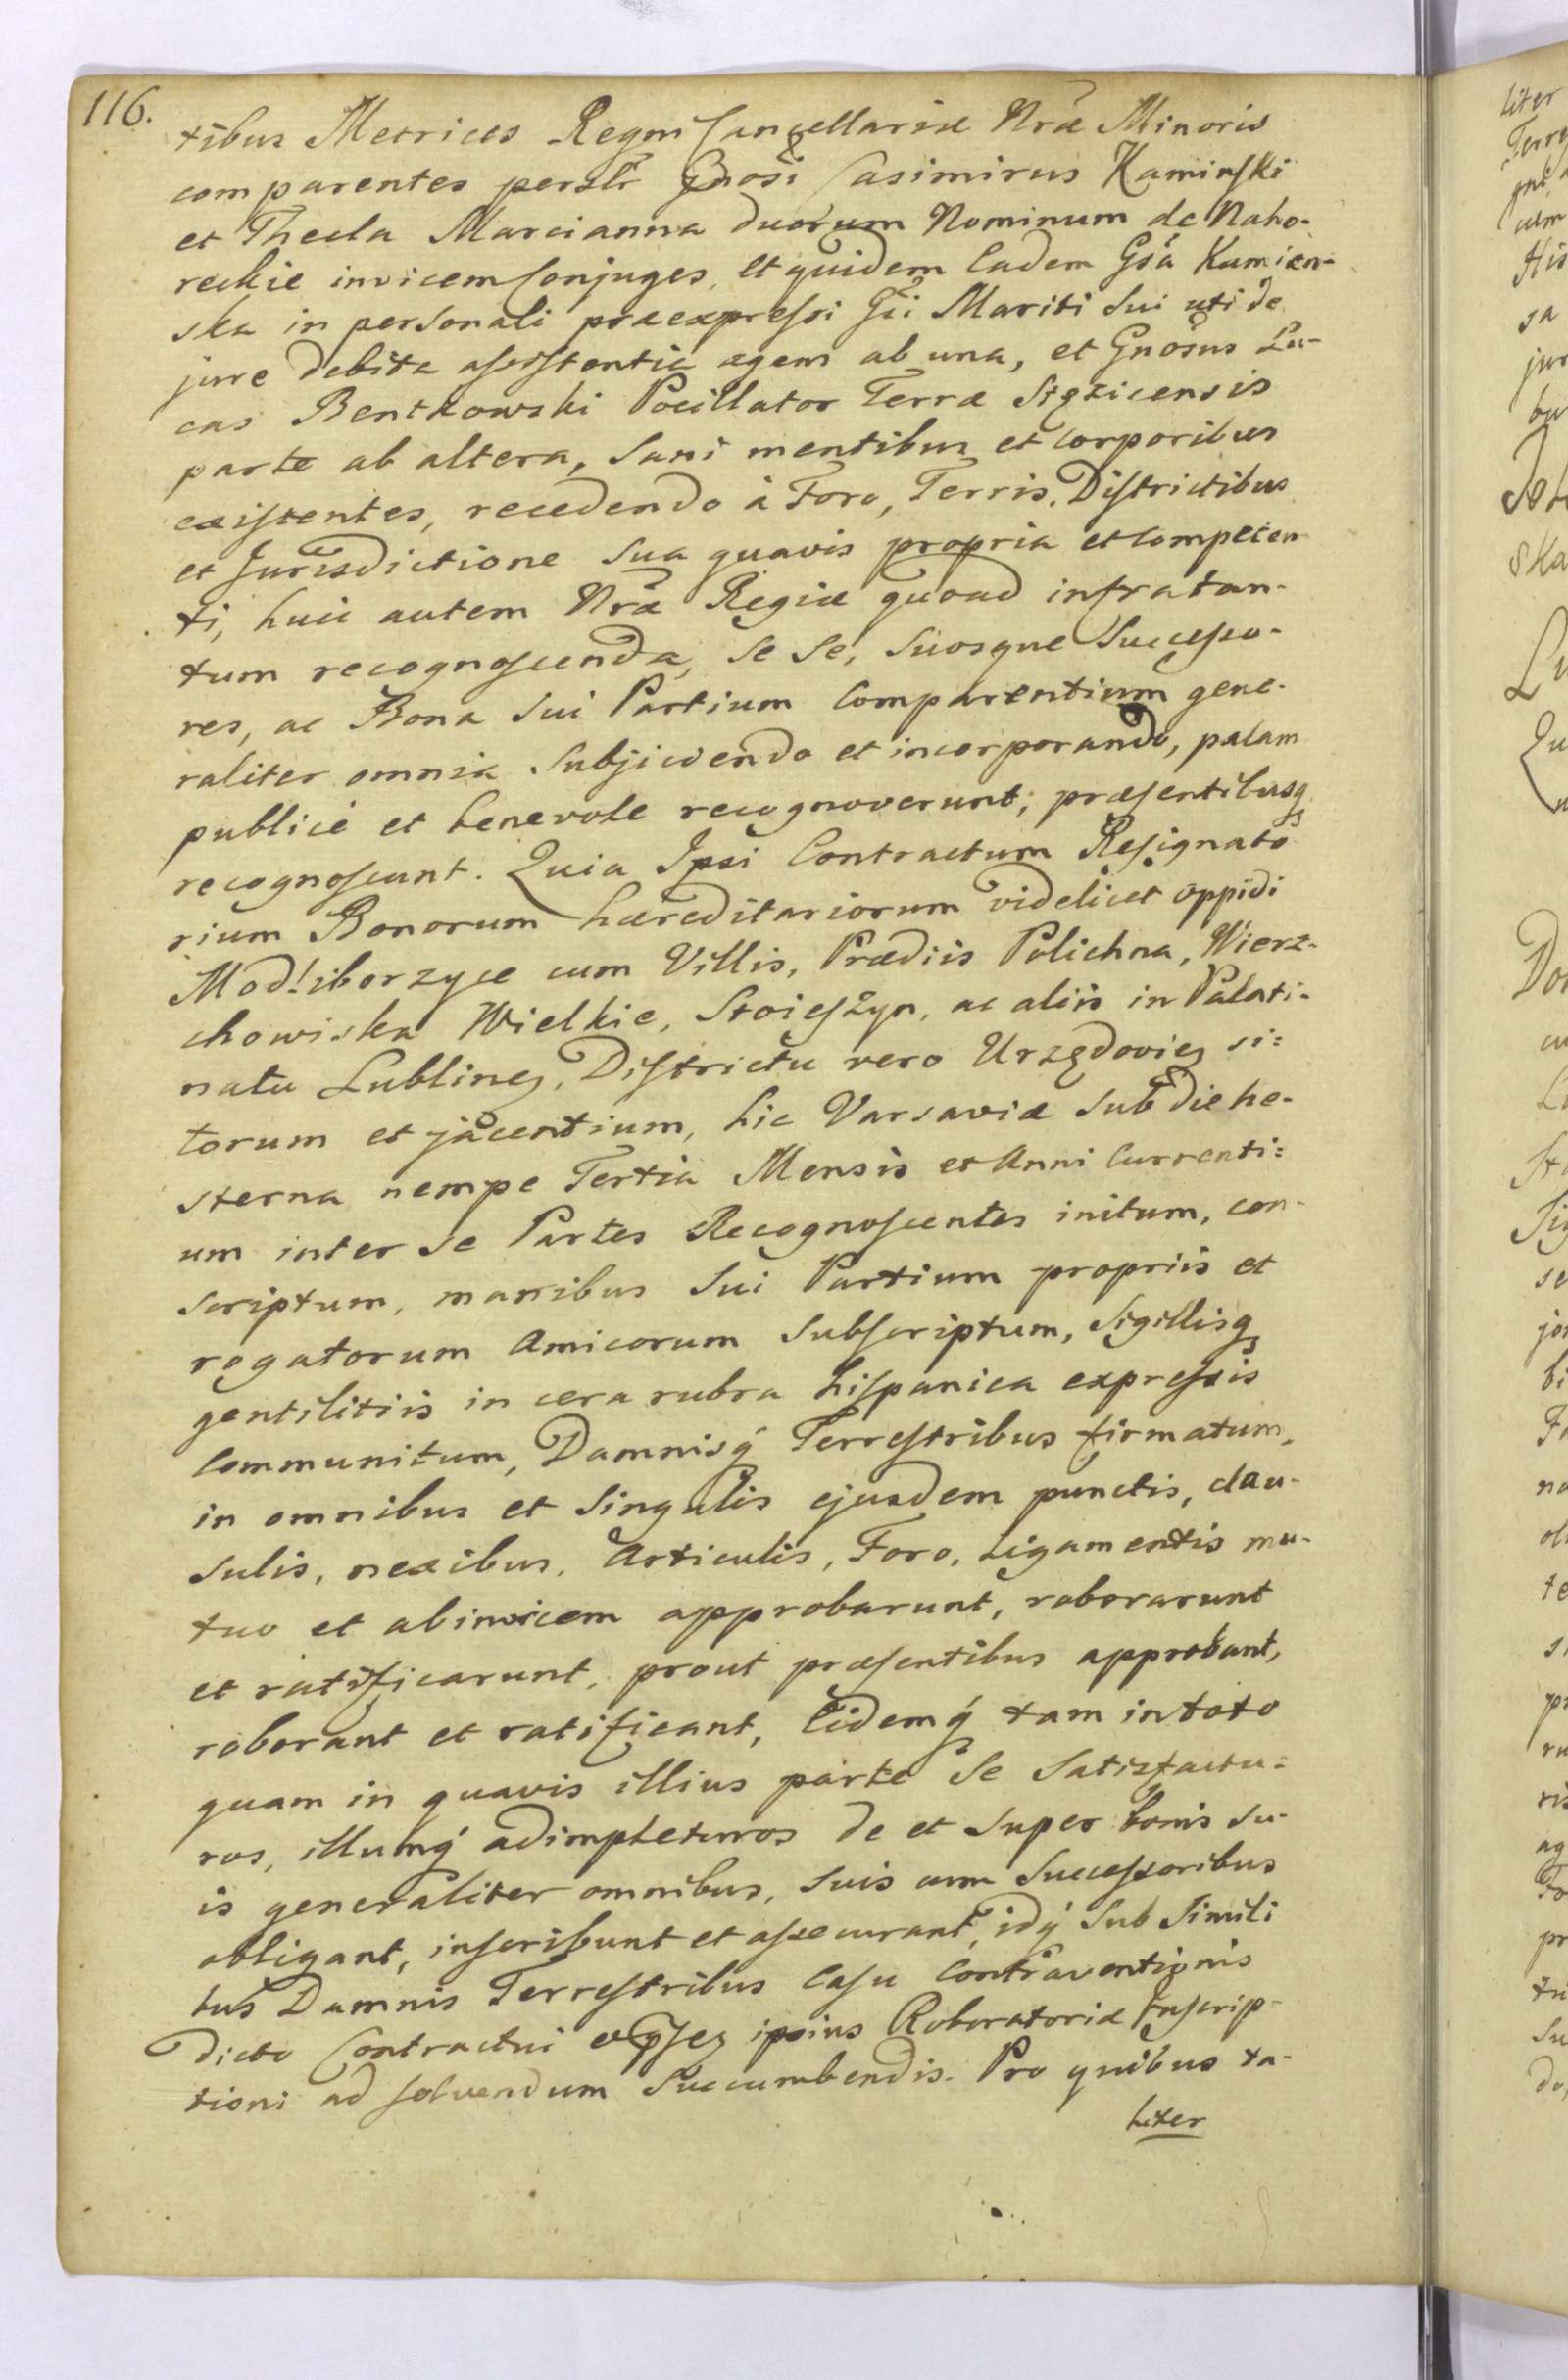 116.
tibus Metrices Regni Cancellariæ Nræ Minoris
comparentes persłr Gnosi Casimirus Kaminski
et Thecla Marcianna duorum Nominum de Naho-
reckie invicem Conjuges, et quidem Eadem Gsa Kamien-
ska in personali præexpressi Gsi Mariti Sui uti de
jure debita assistentia agens ab una, et Gnosus Lu-
cas Bentkowski Pocillator Terræ Stęzicensis
parte ab altera, Sani mentibus et Corporibus
existentes, recedendo à Foro, Terris, Districtibus
et Jurisdictione Sua quavis propria et Competen
ti, huic autem Nræ Regiæ quoad infratan-
tum recognoscenda, Se Se, Suosque Successo-
res, ac Bona Sui Partium Comparentium gene-
raliter omnia Subjiciendo et incorporando, palam
publicè et benevole recognoverunt; præsentibusq
recognoscunt. Quia Ipsi Contractum Resignato
rium Bonorum hæreditariorum videlicet oppidi
Modliborzyce cum Villis, Prædiis Polichna, Wierz-
chowiska Wielkie, Stoieszyn, ac aliis in Palati-
natu Lublinen, Districtu vero Urzędovien si=
torum et jacentium, hic Varsaviæ Sub die he-
sterna nempe Tertia Mensis et Anni Currenti=
um inter Se Partes Recognoscentes initum, con-
scriptum, manibus Sui Partium propriis et
rogatorum Amicorum Subscriptum, Sigillisq
gentilitiis in cera rubra hispanica expressis
Communitum, Damnisq Terrestribus firmatum,
in omnibus et Singulis ejusdem punctis, clau-
sulis, nexibus, Articulis, Foro, Ligamentis mu-
tuo et abinvicem approbarunt, roborarunt
et ratificarunt, prout præsentibus approbant,
roborant et ratificant, Eidemq tam in toto
quam in quavis illius parte Se Satisfactu=
ros, illumq adimpleturos de et Super bonis Su-
is generaliter omnibus, Suis cum Successoribus
obligant, inscribunt et assecurant, idq Sub Simili
bus Damnis Terrestribus Casu Contraventionis
dicto Contractui ipsius Roboratoriæ Inscrip-
tioni ad solvendum Succumbendis. Pro quibus ta-
liter